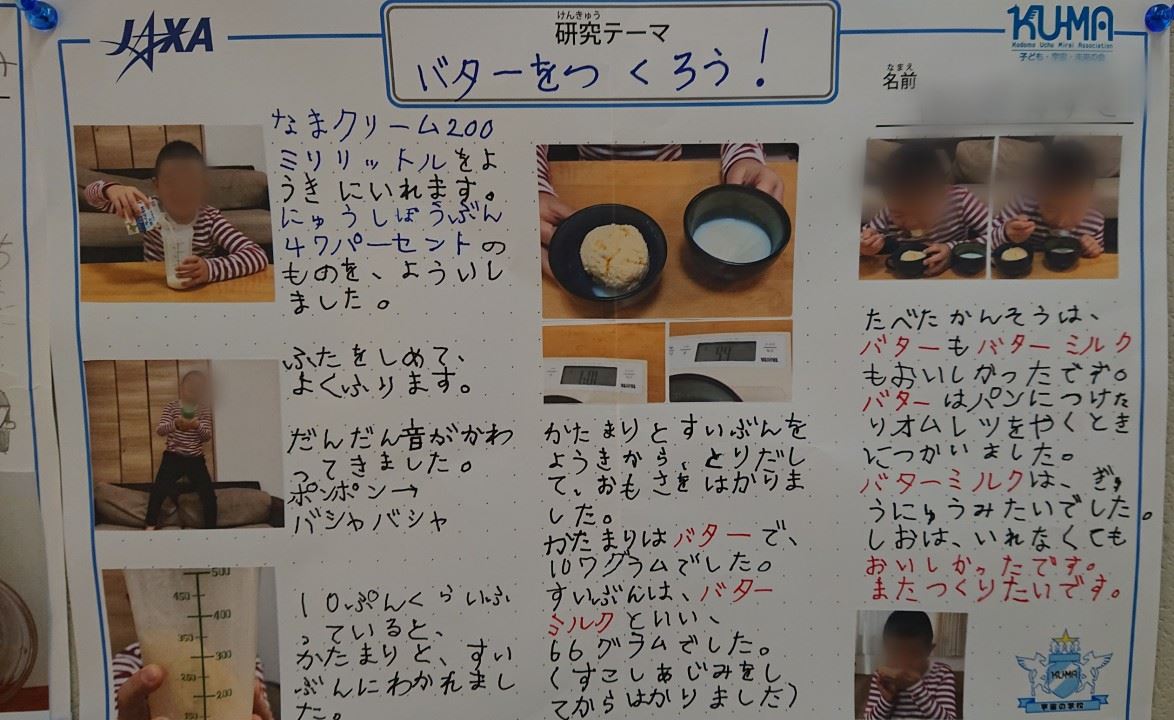 JAXA
けんきゅう
研究テーマ
バターをつくろう!
KU-MA
Kodomo Uchu Mirai Association
子ども・宇宙・未来の会
なまえ
名前
なまクリーム200
ミリリットルをよ
うきにいれます。
にゅうしぼうぶん
47パーセントの
ものを、よういし
ました。
ふたをしめて、
よくふります。
だんだん音がかわ
ってきました。
ポンポン→
バシャバシャ
10ぷんくらいふ
っていると、
かたまりと、すい
ぶんにわかれまし
た。
500
450
400
350
300
250
200
かたまりとすいぶんを
ようきから、とりだし
て、おもさをはかりま
した。
かたまりはバターで、
107グラムでした。
すいぶんは、バター
ミルクといい、
66グラムでした。
(すこしあじみをし
てからはかりました)
たべたかんそうは、
バターもバターミルク
もおいしかったです。
バターはパンにつけた
りオムレツをやくとき
につかいました。
バターミルクは、ぎゅ
うにゅうみたいでした。
しおは、いれなくても
おいしかったです。
またつくりたいです。
KU-MA
宇宙の学校